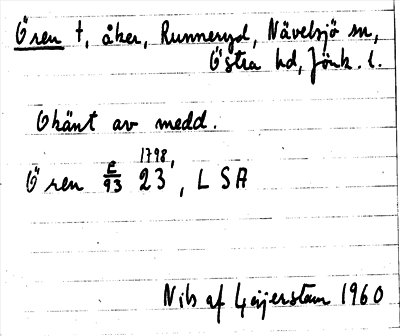 Ören †, åker, Runneryd, Nävelsjö sn,
Östra hd, Jönk. l.
Okänt av medd.
1798,
Ören E/93 23, LSA
Nils af Geijerstam 1960